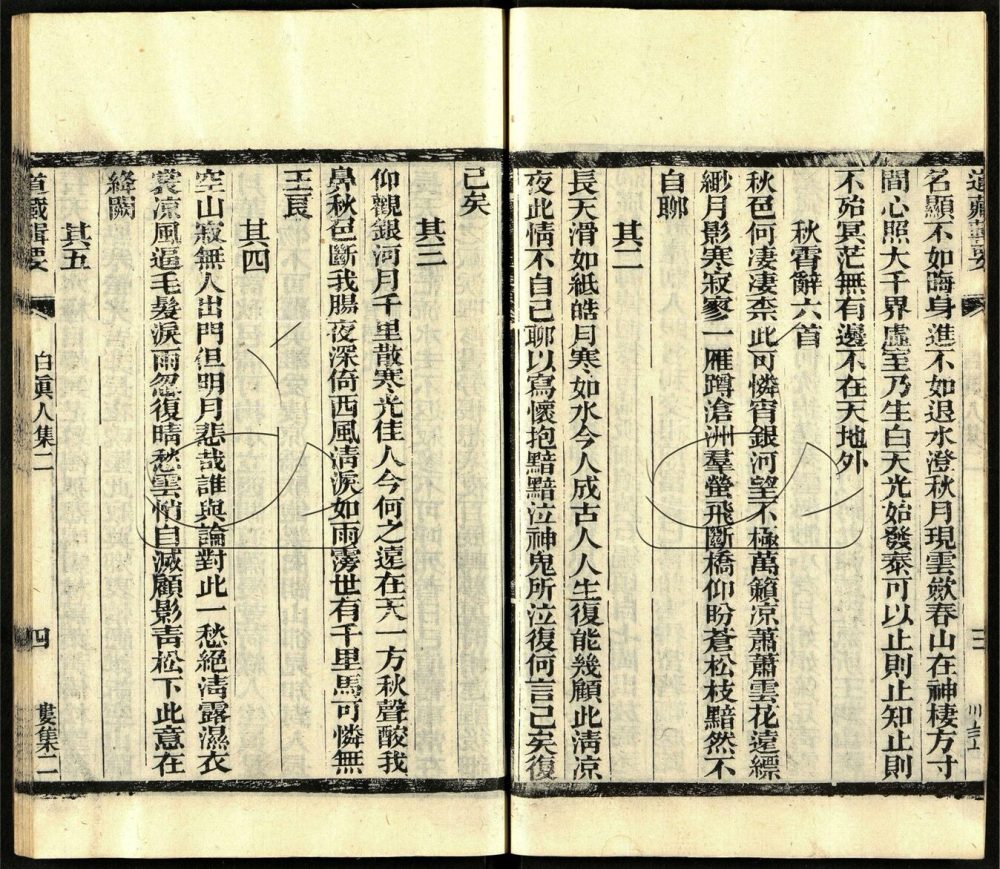 道藏輯要
三
名顯不如晦身進不如退水澄秋月現雲斂春山在神棲方寸
間心照大千界虛室乃生白天光始發泰可以止則止知止則
不殆冥茫無有邊不在天地外
秋霄辭六首
秋色何淒淒柰此可憐宵銀河望不極萬籟凉蕭蕭雲花遠縹
緲月影寒寂寥一雁蹲滄洲羣螢飛斷橋仰盼蒼松枝黯然不
自聊
其二
長天滑如紙皓月寒如水今人成古人人生復能幾顧此淸凉
夜此情不自已聊以寫懷抱黯黯泣神鬼所泣復何言已矣復
已矣
其三
仰觀銀河月千里散寒光佳人今何之遠在天一方秋聲酸我
鼻秋色斷我腸夜深倚西風淸淚如雨雱世有千里馬可憐無
王良
其四
空山寂無人出門但明月悲哉誰與論對此一愁絕淸露濕衣
裳凉風逼毛髮淚雨忽復晴愁雲悄自滅顧影靑松下此意在
絳闕
其五
道藏輯要
白眞人集二
四
婁集二